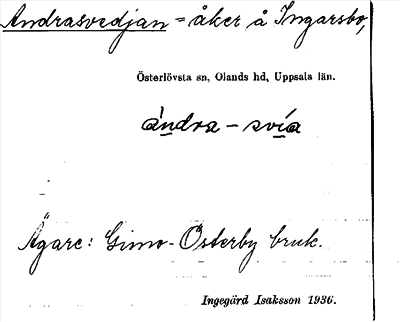 Andrasvedjan = åker å Ingarsbo,
Österlövsta sn, Olands hd, Uppsala län.
ándra – svía
Ägare: Gimo-Österby bruk.
Ingegärd Isaksson 1936.